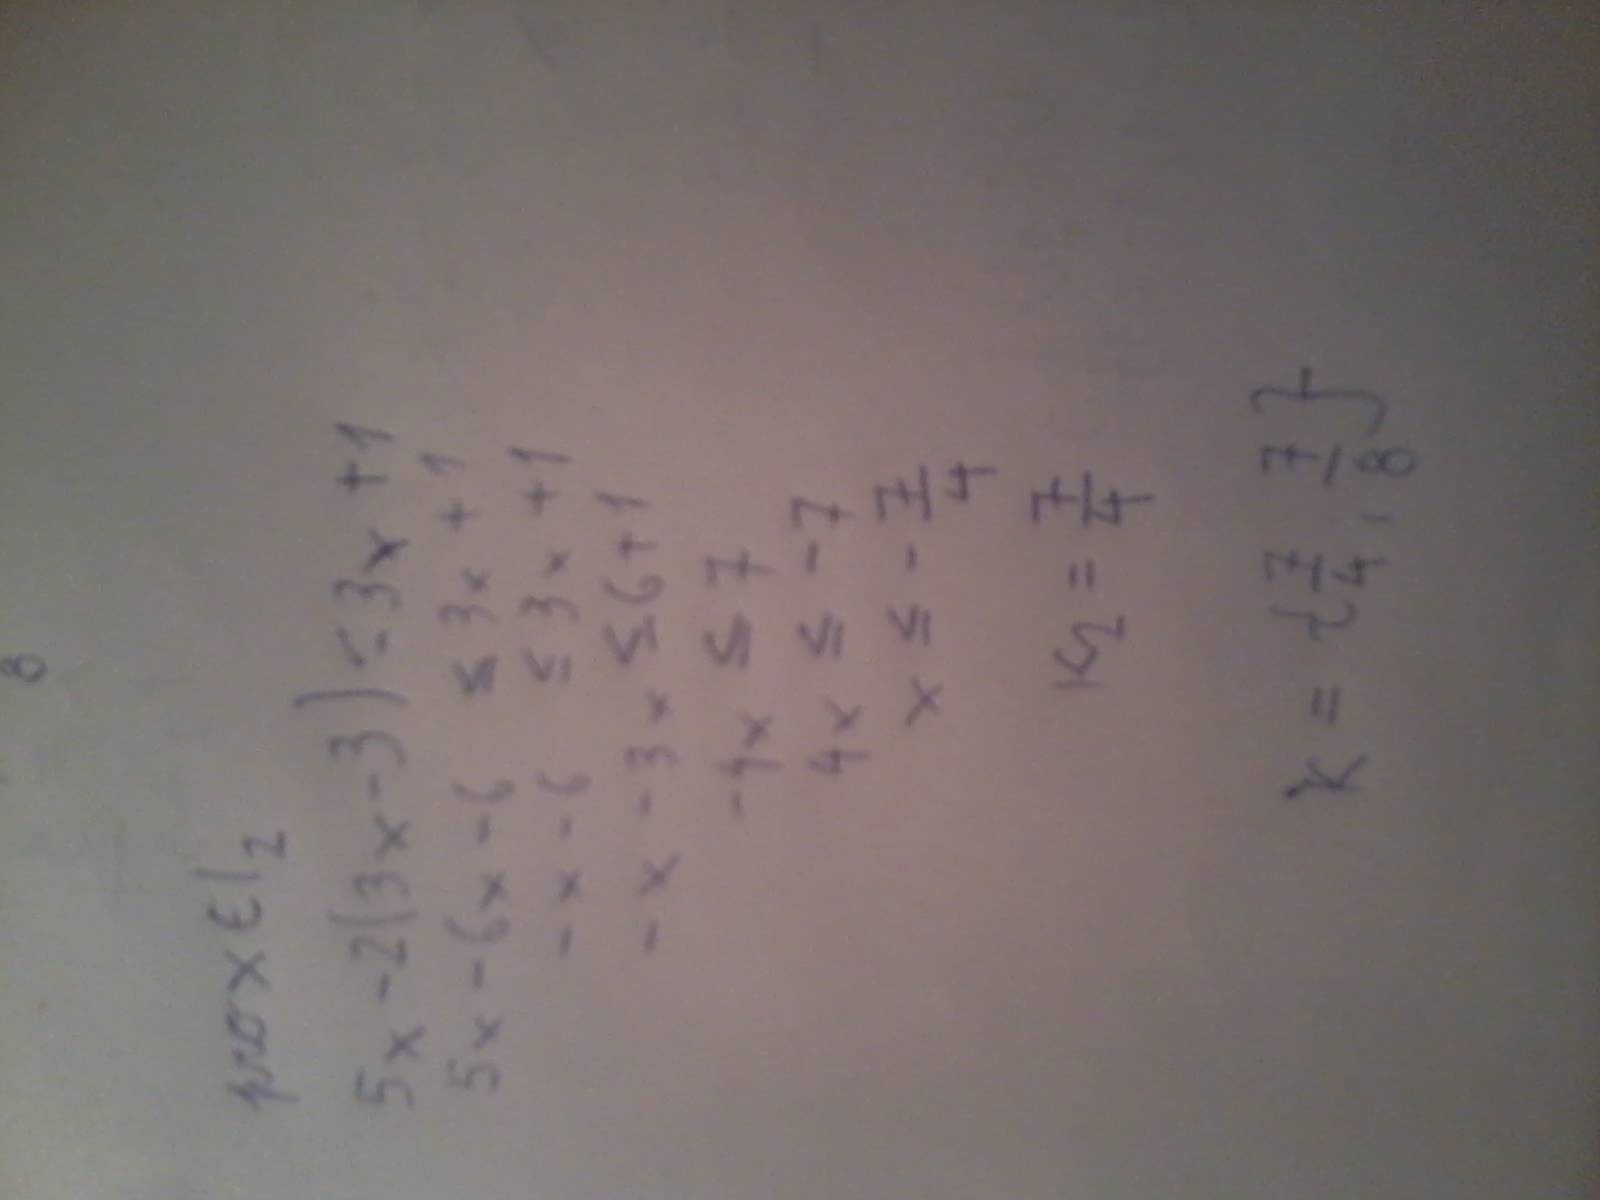 8
pro x ∈ I₂
5x - 2(3x - 3) ≤ 3x + 1
5x - 6x - 6 ≤ 3x + 1
- x - 6 ≤ 3x + 1
- x - 3x ≤ 6 + 1
-4x ≤ 7
4x ≤ -7
x ≤ - 7/4
K₂ = 7/4
K = {7/4 ; 7/8}